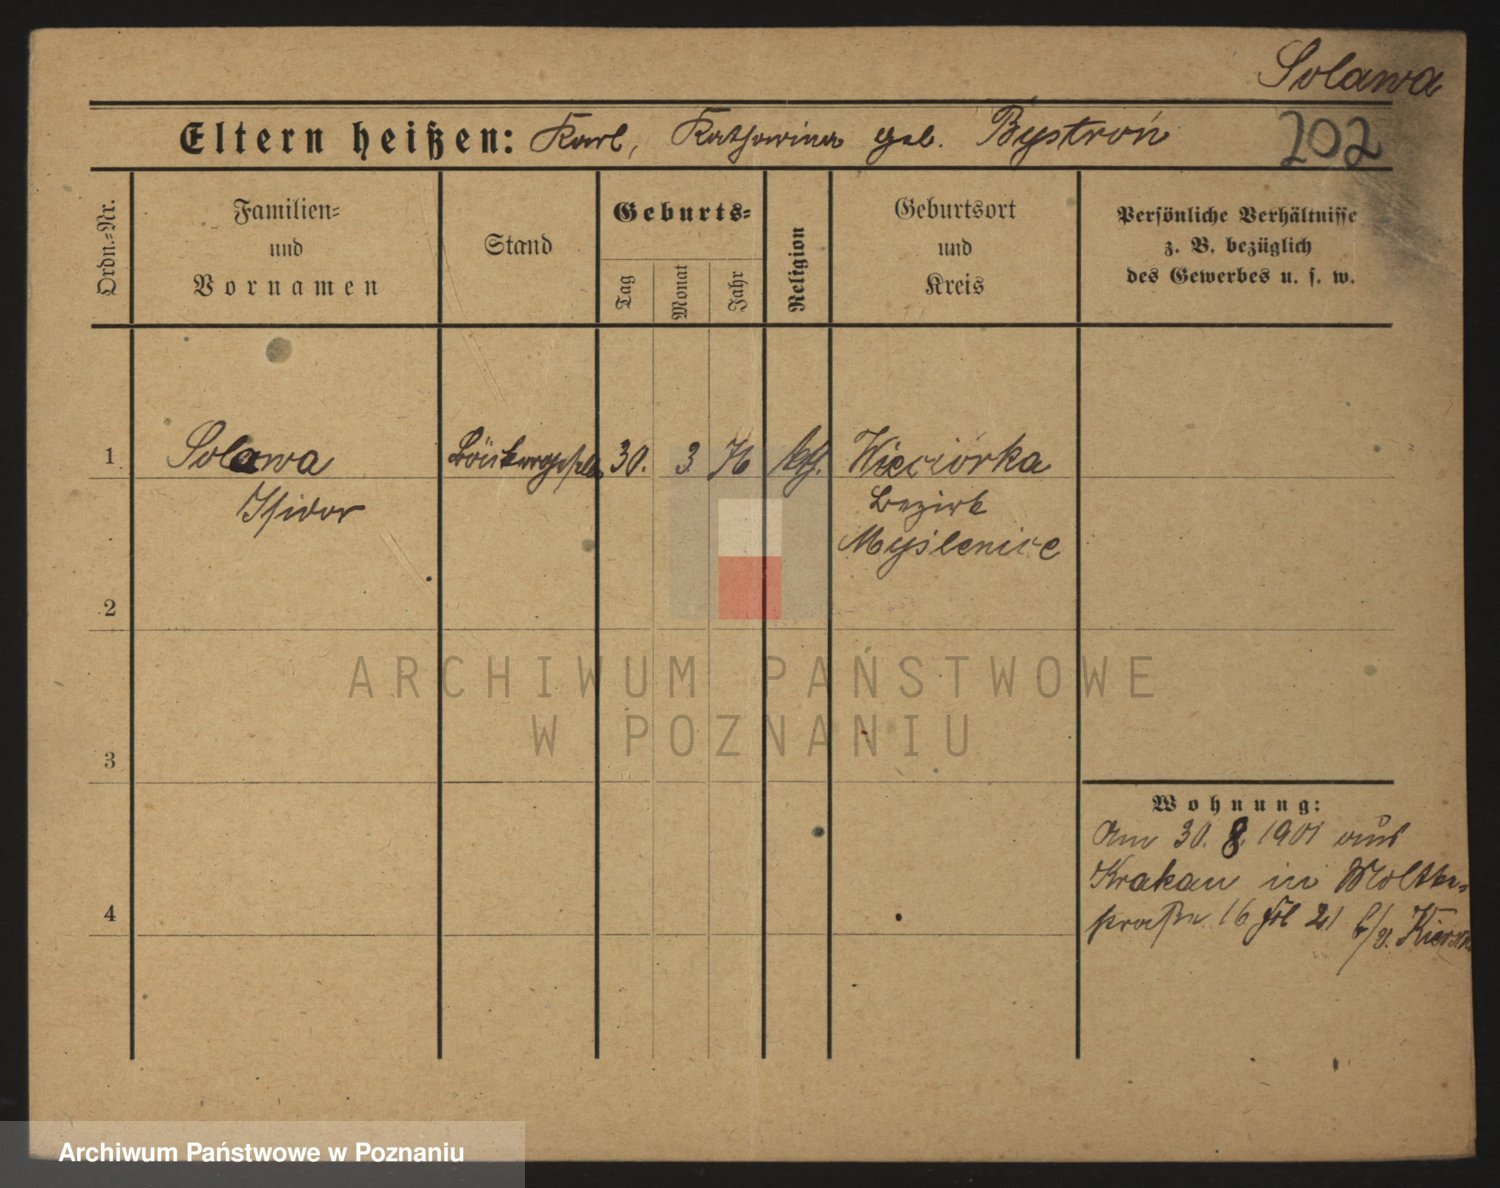 Solawa
Eltern heißen: Karl, Katharina geb. Bystroń
202
Ordn.=Nr.
Familien=
und
Vornamen
Stand
Geburts=
Tag
Monat
Jahr
Religion
Geburtsort
und
Kreis
Persönliche Verhältnisse
z. B. bezüglich
des Gewerbes u. s. w.
1
Solawa
30. 3 76 kth.
Więciórka
Isidor
Bezirk
Myślenice
2
ARCHIWUM PAŃSTWOWE
W POZNANIU
3
Wohnung:
Am 30. 8. 1901 aus
Krakau in Moltke=
straße 16
4
Archiwum Państwowe w Poznaniu